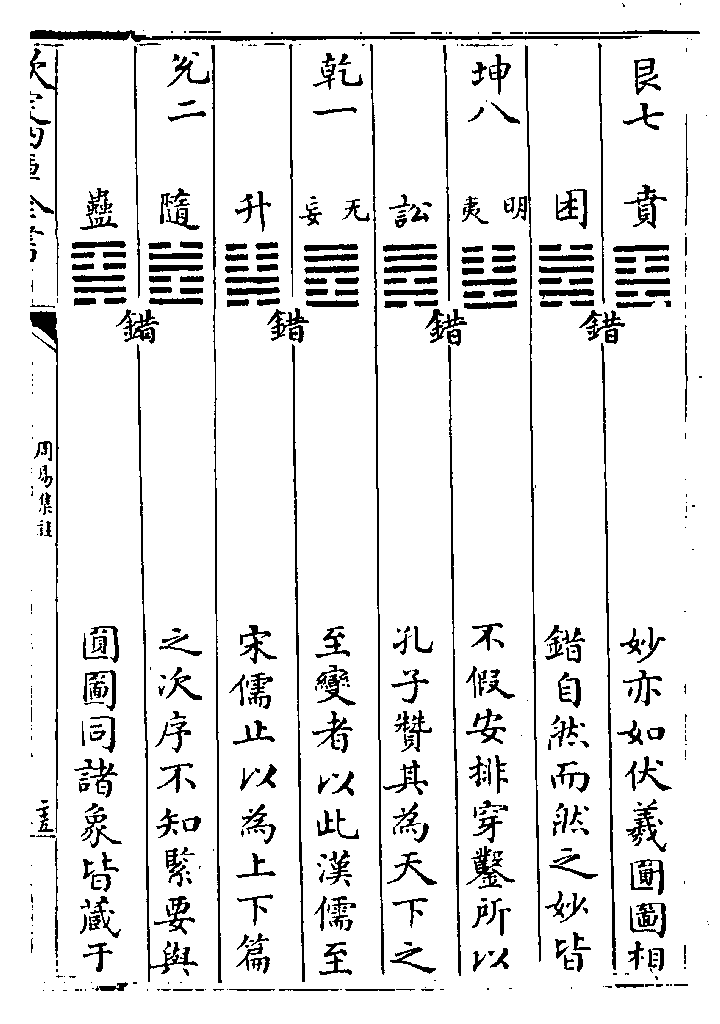 艮七　賁䷕　妙亦如伏羲圓圖相
困䷮　錯自然而然之妙皆
錯
坤八　明夷䷣　不假安排穿鑿所以
訟䷅　孔子贊其為天下之
錯
乾一　无妄䷘　至變者以此漢儒至
升䷭　宋儒止以為上下篇
錯
兌二　隨䷐　之次序不知緊要與
蠱䷑　圓圖同諸象皆藏于
錯
欽定四庫全書
周易集註